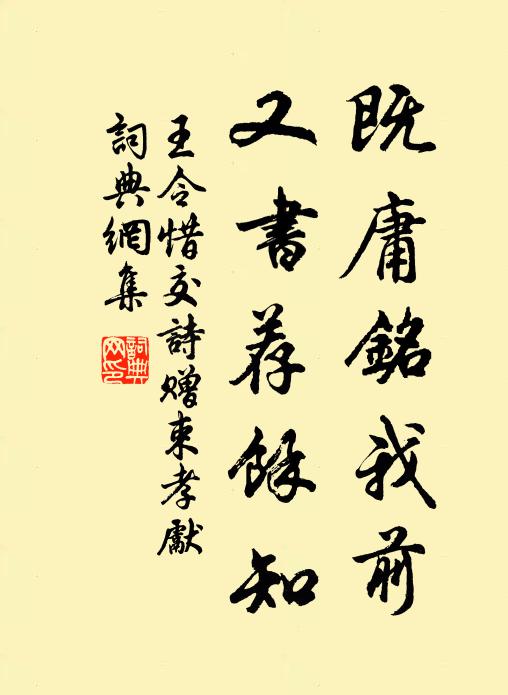 既庸銘我前
又書荐餘知
王令惜交詩贈束孝獻
詞典網集
詞典網印